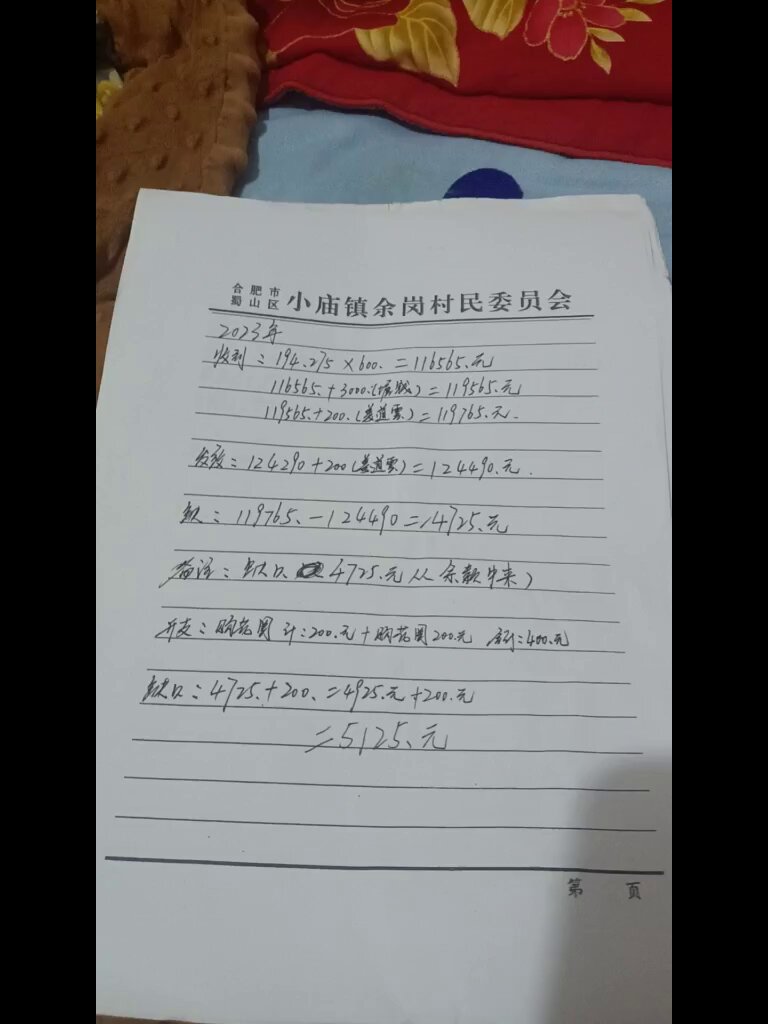 合肥市
蜀山区 小庙镇余岗村民委员会
2023年
收到：194.275×600.=116565.元
116565.+3000.(塘钱)=119565.元
119565.+200.(姜道云)=119765.元.
发放：124290+200(姜道云)=124490.元.
缺：119765.-124490=4725.元
备注：缺口 4725.元从余款中来)
开支：购花圈 计:200.元+购花圈200.元 合计:400.元
缺口：4725.+200.=4925.元+200.元
=5125.元
第 页